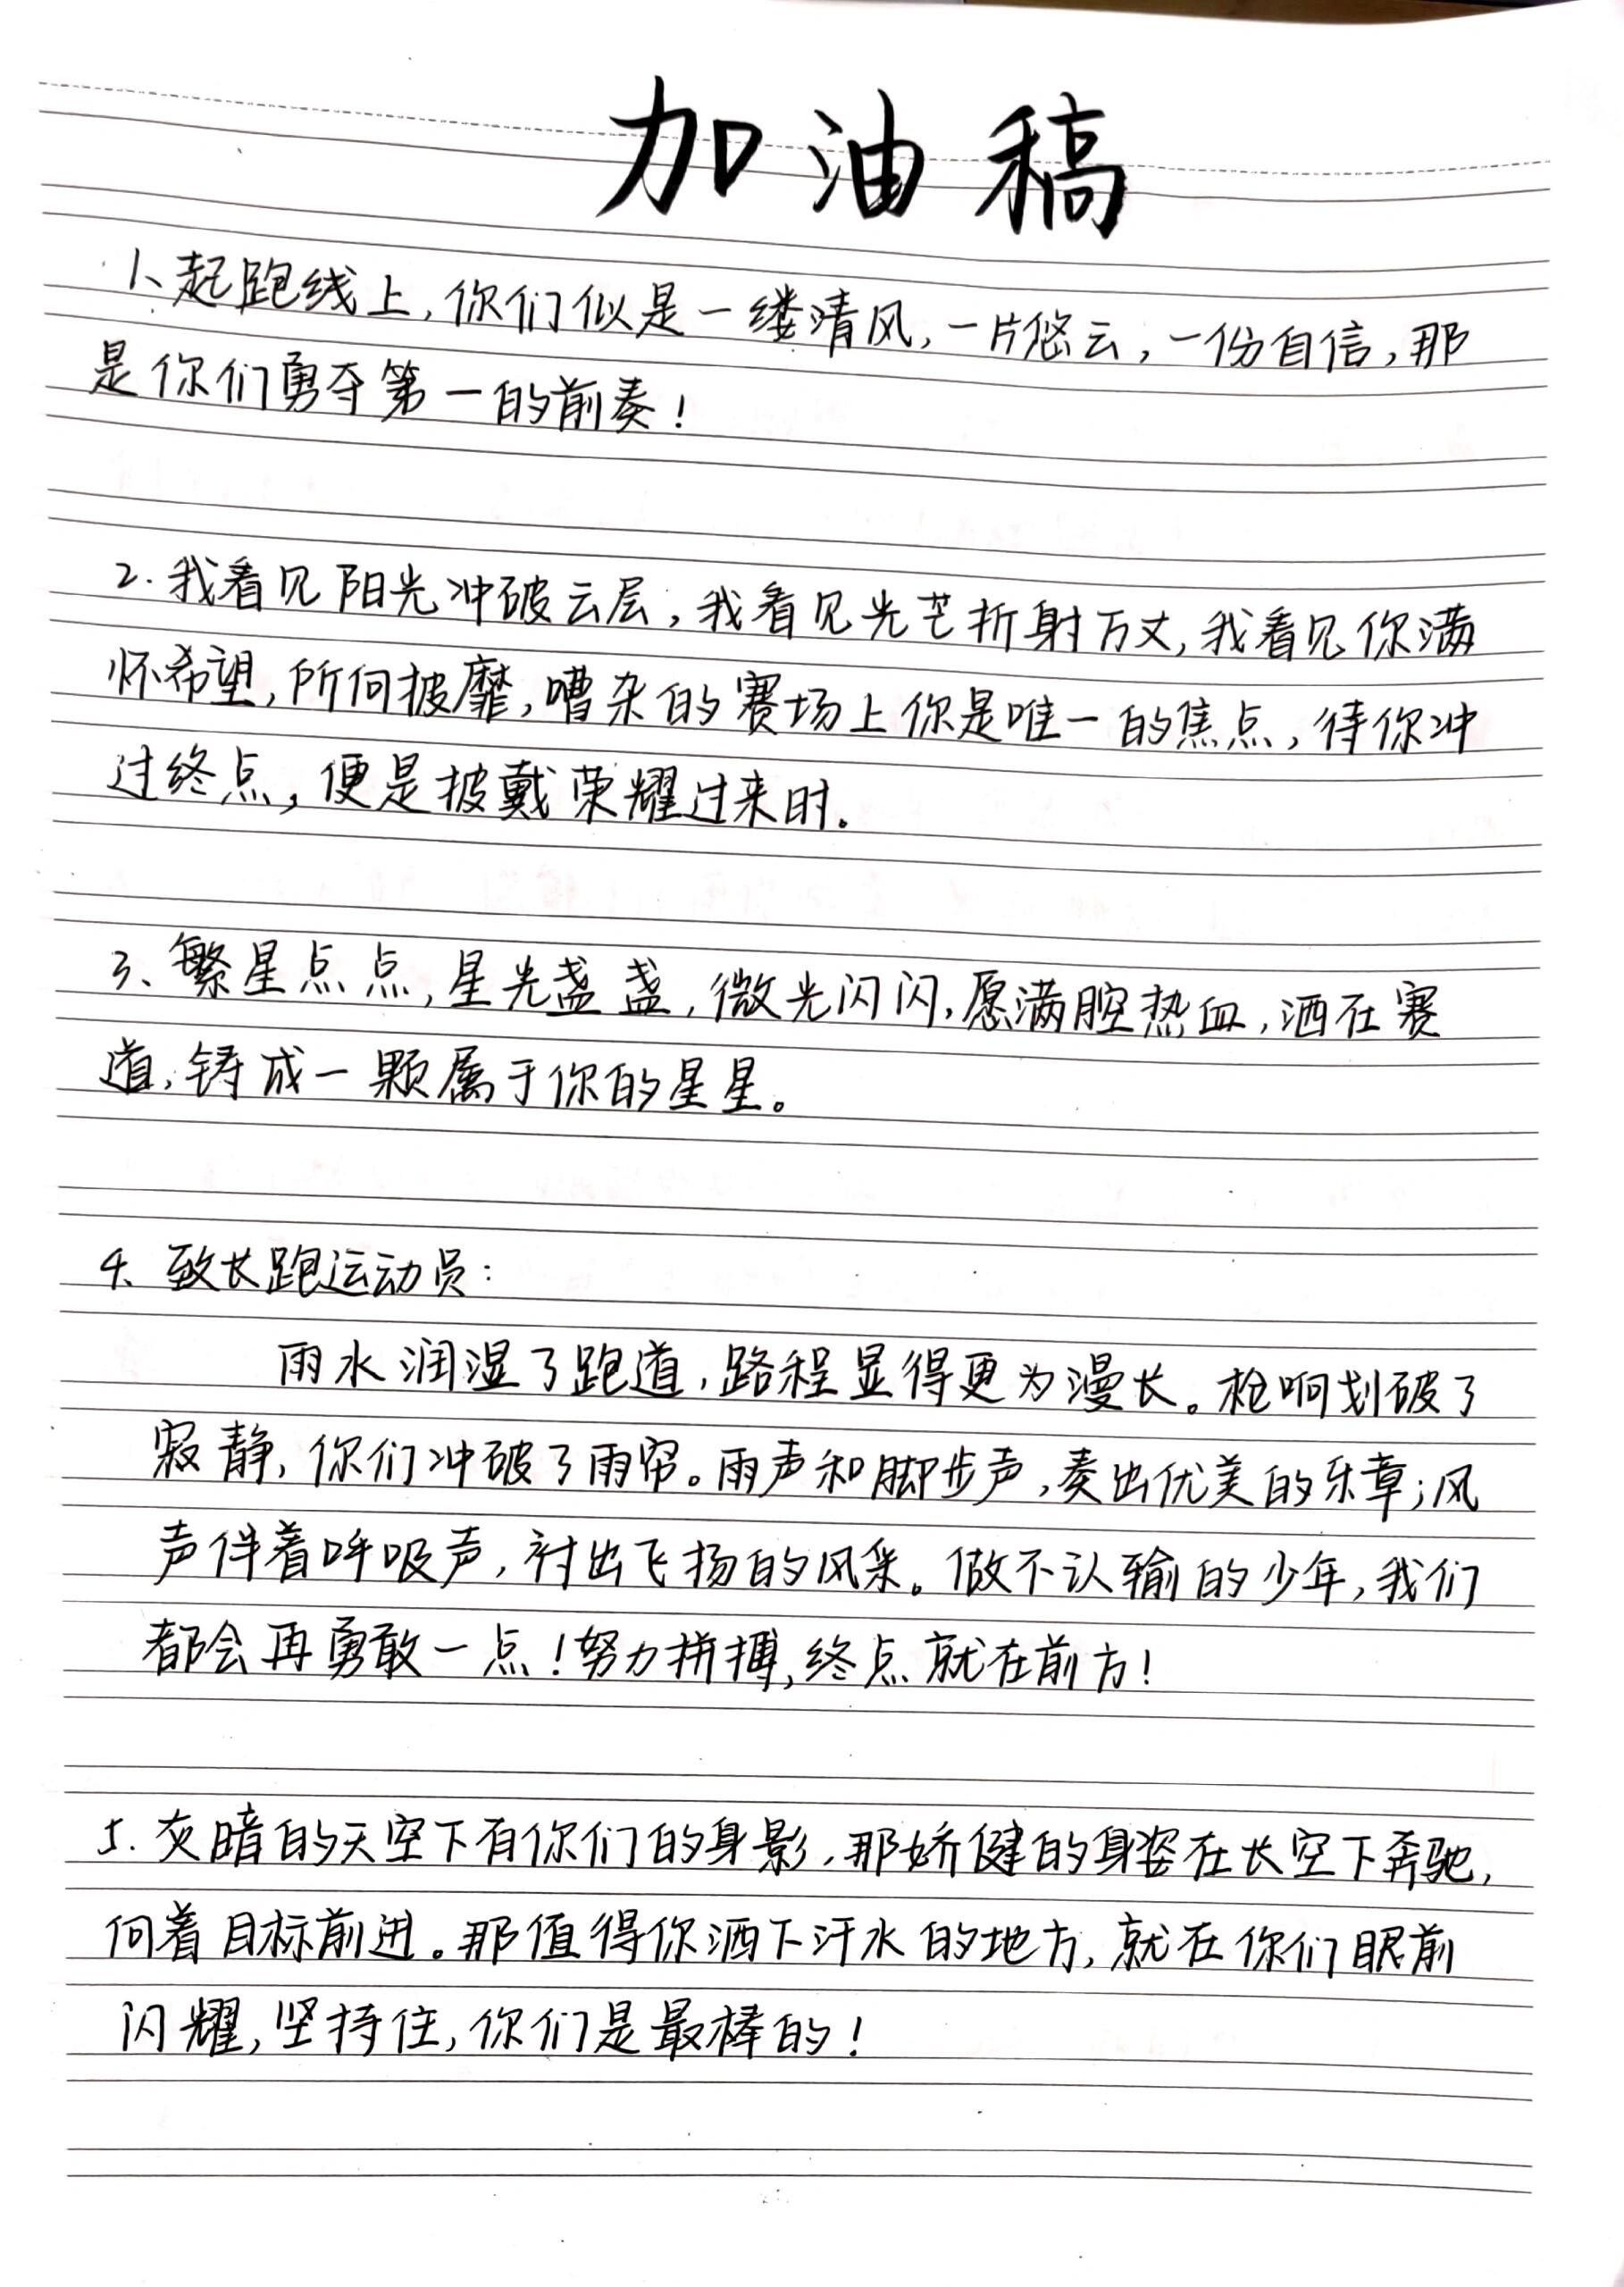 加油稿
1、起跑线上,你们似是一缕清风,一片悠云,一份自信,那
是你们勇夺第一的前奏!
2.我看见阳光冲破云层,我看见光芒折射万丈,我看见你满
怀希望,所向披靡,嘈杂的赛场上你是唯一的焦点,待你冲
过终点,便是披戴荣耀过来时。
3、繁星点点,星光盏盏,微光闪闪,愿满腔热血,洒在赛
道,铸成一颗属于你的星星。
4、致长跑运动员:
雨水润湿了跑道,路程显得更为漫长。枪响划破了
寂静,你们冲破了雨帘。雨声和脚步声,奏出优美的乐章;风
声伴着呼吸声,衬出飞扬的风采。做不认输的少年,我们
都会再勇敢一点!努力拼搏,终点就在前方!
5.灰暗的天空下有你们的身影,那娇健的身姿在长空下奔驰,
向着目标前进。那值得你洒下汗水的地方,就在你们眼前
闪耀,坚持住,你们是最棒的!